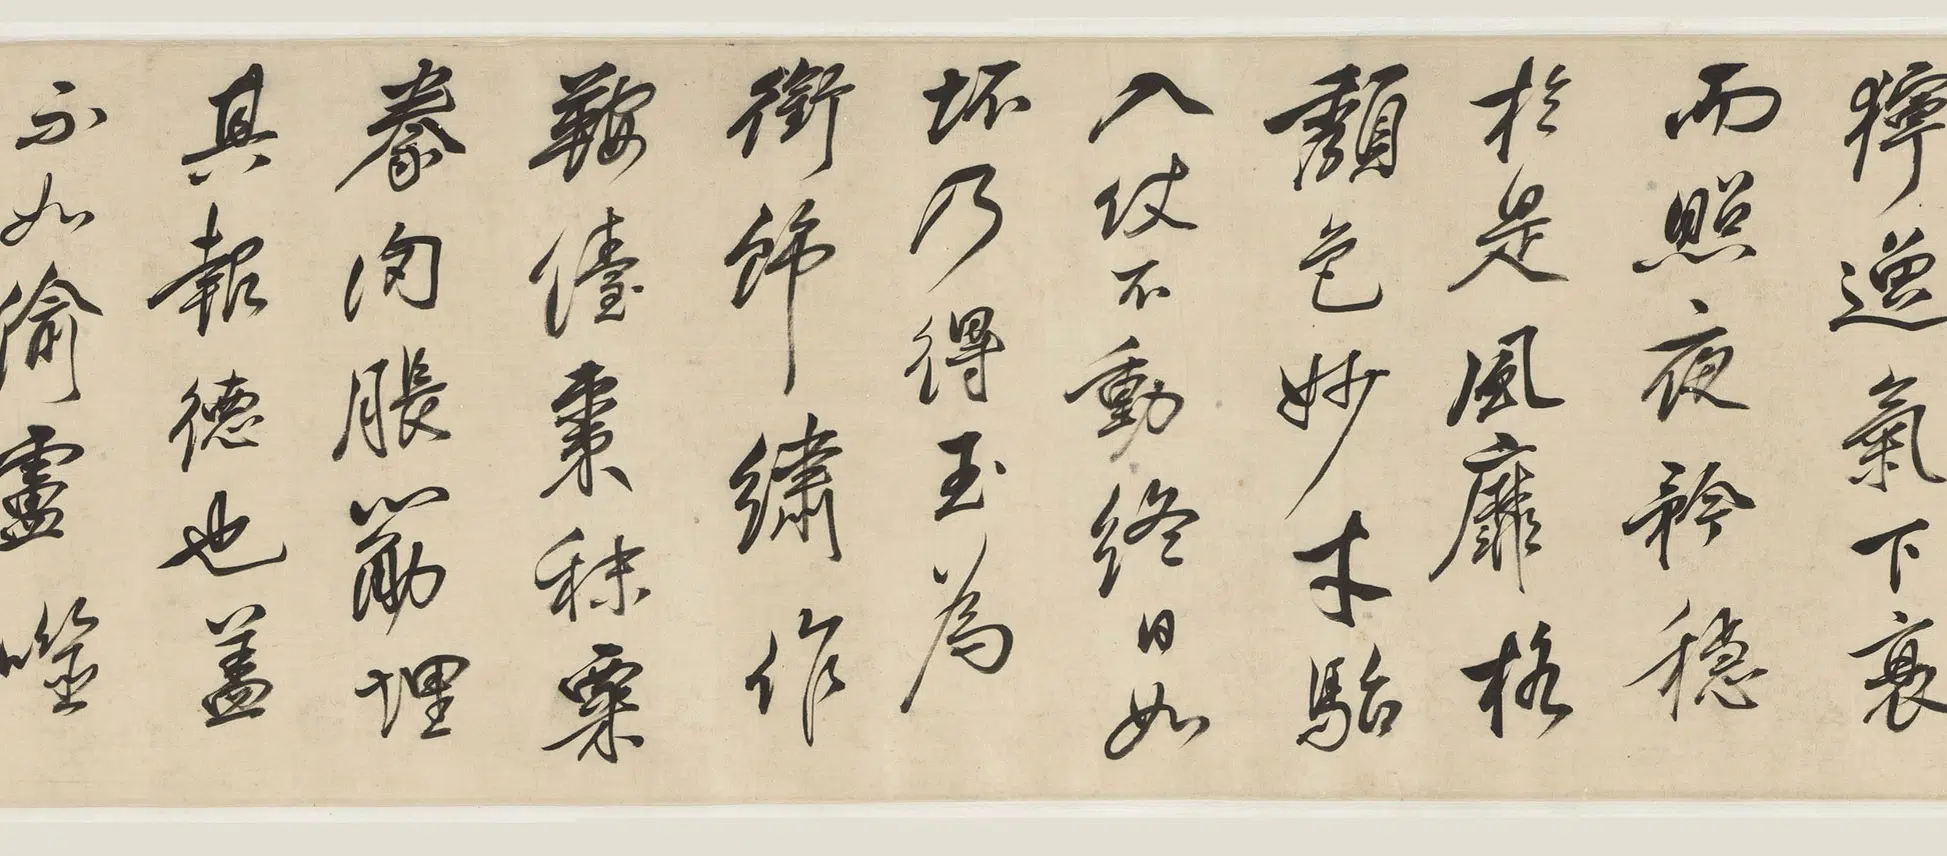 獰逸氣下衰
而照夜矜穩
於是風靡格
頹色妙才駘
入仗不動終日如
坯乃得玉為
銜飾繡作
鞍儓棗秣粟
豢肉脹筋埋
其報德也蓋
不如偷盧噬